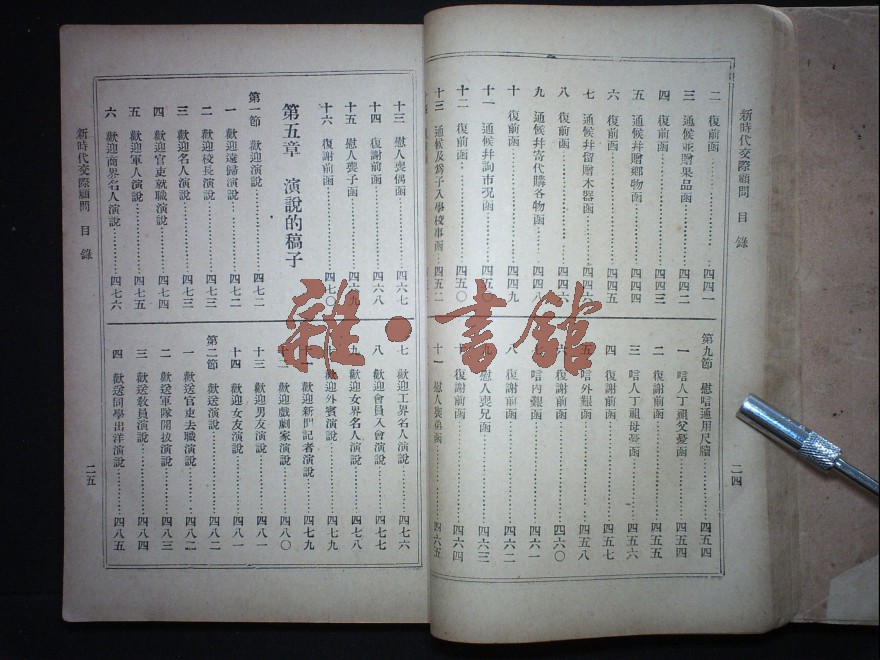 新時代交際顧問 目錄
二 復前函 四四一
三 通候並贈果品函 四四二
四 復前函 四四三
五 通候幷贈鄉物函 四四四
六 復前函 四四五
七 通候幷留贈木器函 四四
八 復前函 四四六
九 通候幷寄代購各物函 四四八
十 復前函 四四九
十一 通候幷詢市況函 四五〇
十二 復前函 四五〇
十三 通候及為子入學校事函 四五二
第九節 慰唁通用尺牘
一 唁人丁祖父憂函 四五四
二 復謝前函 四五五
三 唁人丁祖母憂函 四五六
四 復謝前函 四五七
五 唁外艱函 四五八
六 復謝前函 四六〇
七 唁內艱函 四六一
八 復謝前函 四六二
九 慰人喪兄函 四六三
十 復謝前函 四六四
十一 慰人喪弟函 四六五
二四
十三 慰人喪偶函 四六七
十四 復謝前函 四六八
十五 慰人喪子函 四六九
十六 復謝前函 四七〇
第五章 演說的稿子
第一節 歡迎演說 四七二
一 歡迎遠歸演說 四七二
二 歡迎校長演說 四七三
三 歡迎名人演說 四七三
四 歡迎官吏就職演說 四七四
五 歡迎軍人演說 四七五
六 歡迎商界名人演說 四七六
新時代交際顧問 目錄
七 歡迎工界名人演說 四七六
八 歡迎會員入會演說 四七七
九 歡迎女界名人演說 四七八
十 歡迎外賓演說 四七九
十一 歡迎新聞記者演說 四七九
十二 歡迎戲劇家演說 四八〇
十三 歡迎男友演說 四八一
十四 歡迎女友演說 四八一
第二節 歡送演說 四八二
一 歡送官吏去職演說 四八二
二 歡送軍隊開拔演說 四八三
三 歡送敎員演說 四八四
四 歡送同學出洋演說 四八五
二五
雜·書館